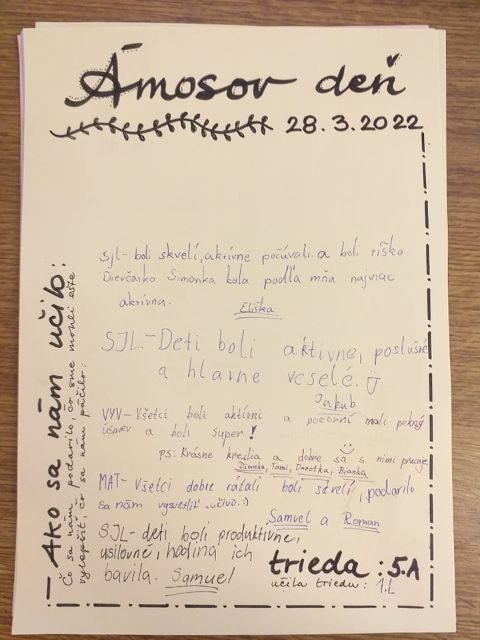 Ámosov deň
28.3.2022
Ako sa nám učilo:
Čo sa nám podarilo, čo sme mohli ešte
vylepšiť, čo sa nám páčilo:
Sjl- boli skvelí, aktívne počúvali a boli ticho
Dievčatko Simonka bola podľa mňa najviac
aktívna.
Eliška
SJL-Deti boli aktívne, poslušné
a hlavne veselé. :)
Jakub
VYV- Všetci boli aktívni a pozorní mali pekný
úsmev a boli super!
ps: Krásne kreslia a dobre sa s nimi pracuje
Dianka, Tami, Dorotka, Bianka
MAT- Všetci dobre rátali boli skvelí, podarilo
sa nám vysvetliť učivo :)
Samuel a Roman
SJL- deti boli produktívne,
usilovné, hodina ich
bavila. Samuel
trieda : 5.A
učila triedu: 1.L